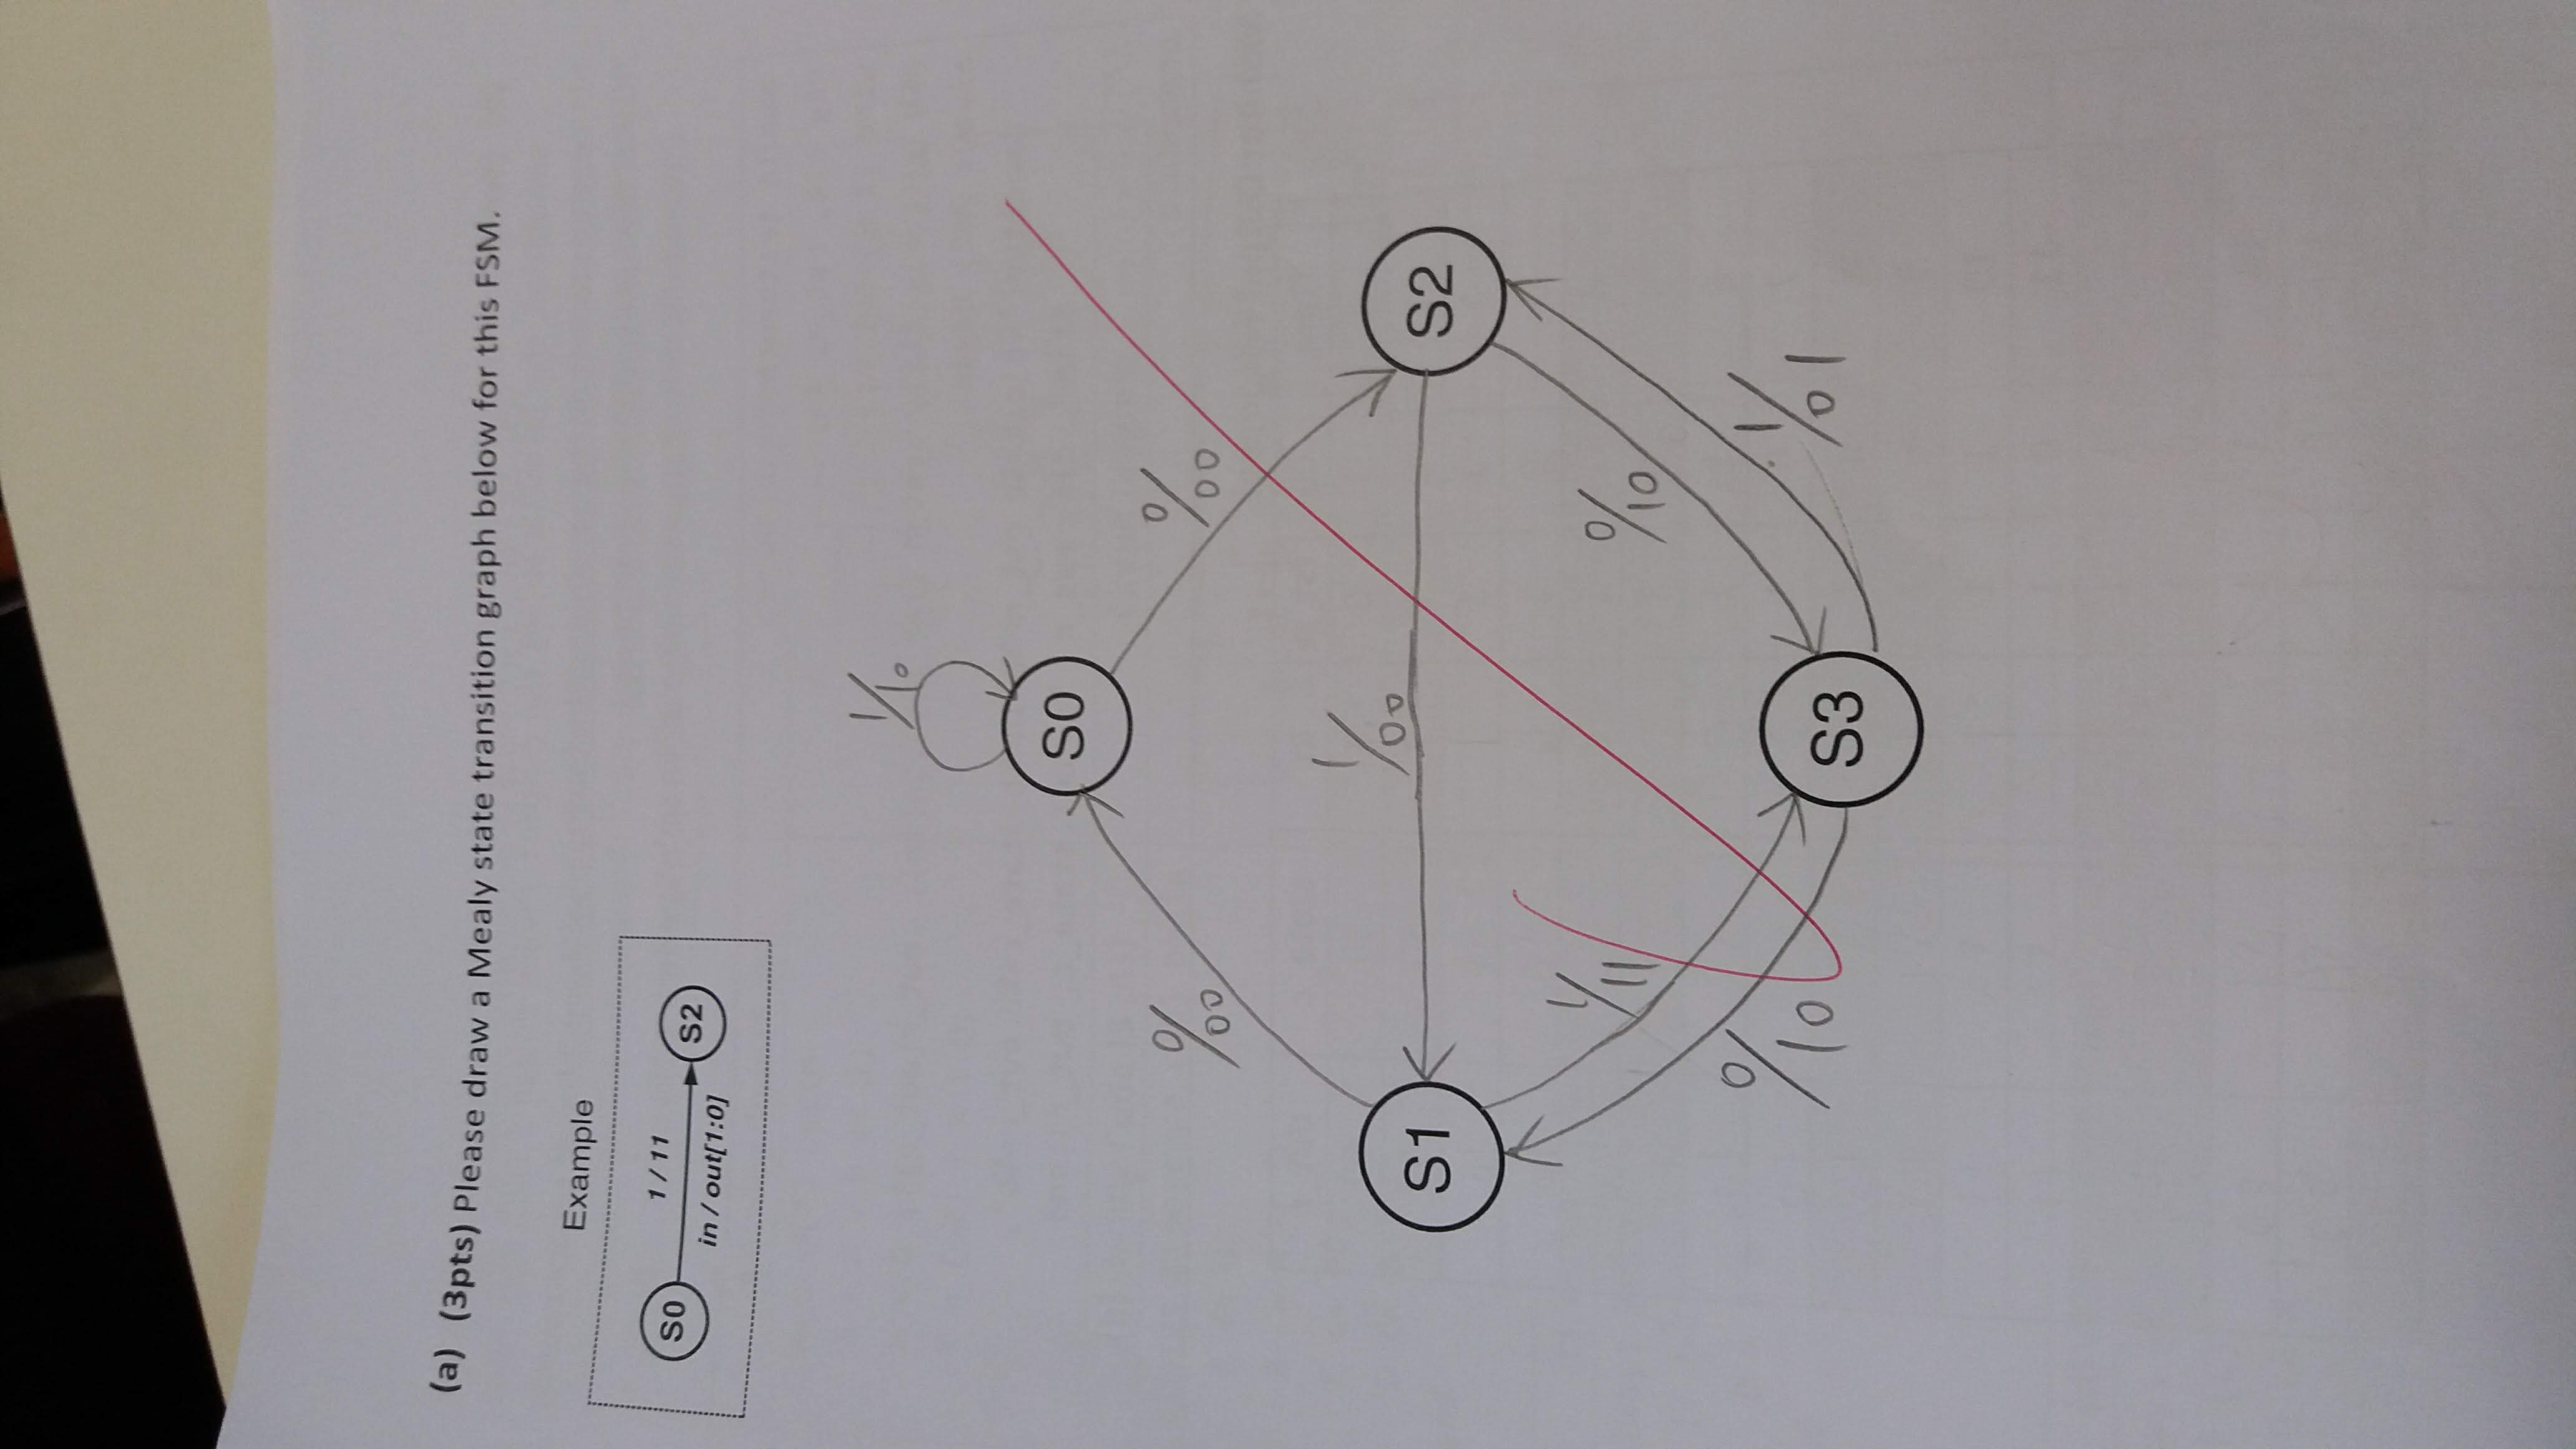 (a) (3pts) Please draw a Mealy state transition graph below for this FSM.
Example
S0
1 / 11
in / out[1:0]
S2
1/10
S0
0/00
0/00
1/00
S1
S2
1/11
0/10
0/10
1/01
S3